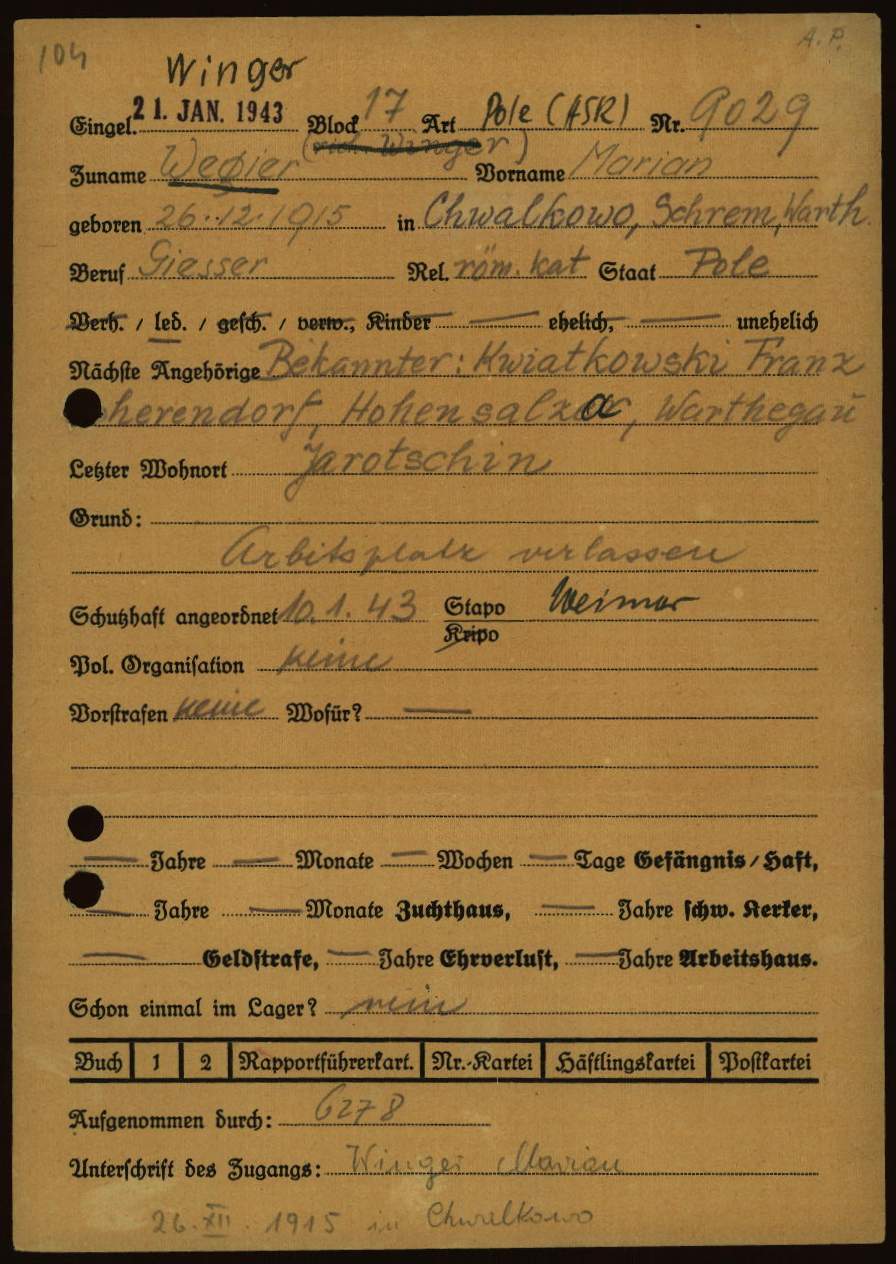 104
A. P.
Winger
Eingel. 21. JAN. 1943 Block 17 Art Pole (ASR) Nr. 9029
(richt. Winger)
Zuname Wegier Vorname Marian
geboren 26.12.1915 in Chwalkowo, Schrem, Warth.
Beruf Giesser Rel. röm. kat Staat Pole
Verh. / led. / gesch. / verw., Kinder — ehelich, — unehelich
Nächste Angehörige Bekannter: Kwiatkowski Franz
herendorf, Hohensalza, Warthegau
Letzter Wohnort Jarotschin
Grund:
Arbitsplatz verlassen
Schutzhaft angeordnet 10.1.43 Stapo Weimar
Kripo
Pol. Organisation keine
Vorstrafen keine Wofür? —
— Jahre — Monate — Wochen — Tage Gefängnis / Haft,
— Jahre — Monate Zuchthaus, — Jahre schw. Kerker,
— Geldstrafe, — Jahre Ehrverlust, — Jahre Arbeitshaus.
Schon einmal im Lager? nein
Buch 1 2 Rapportführerkart. Nr.-Kartei Häftlingskartei Postkartei
Aufgenommen durch: 6278
Unterschrift des Zugangs: Winger Marian
26. XII. 1915 in Chwalkowo